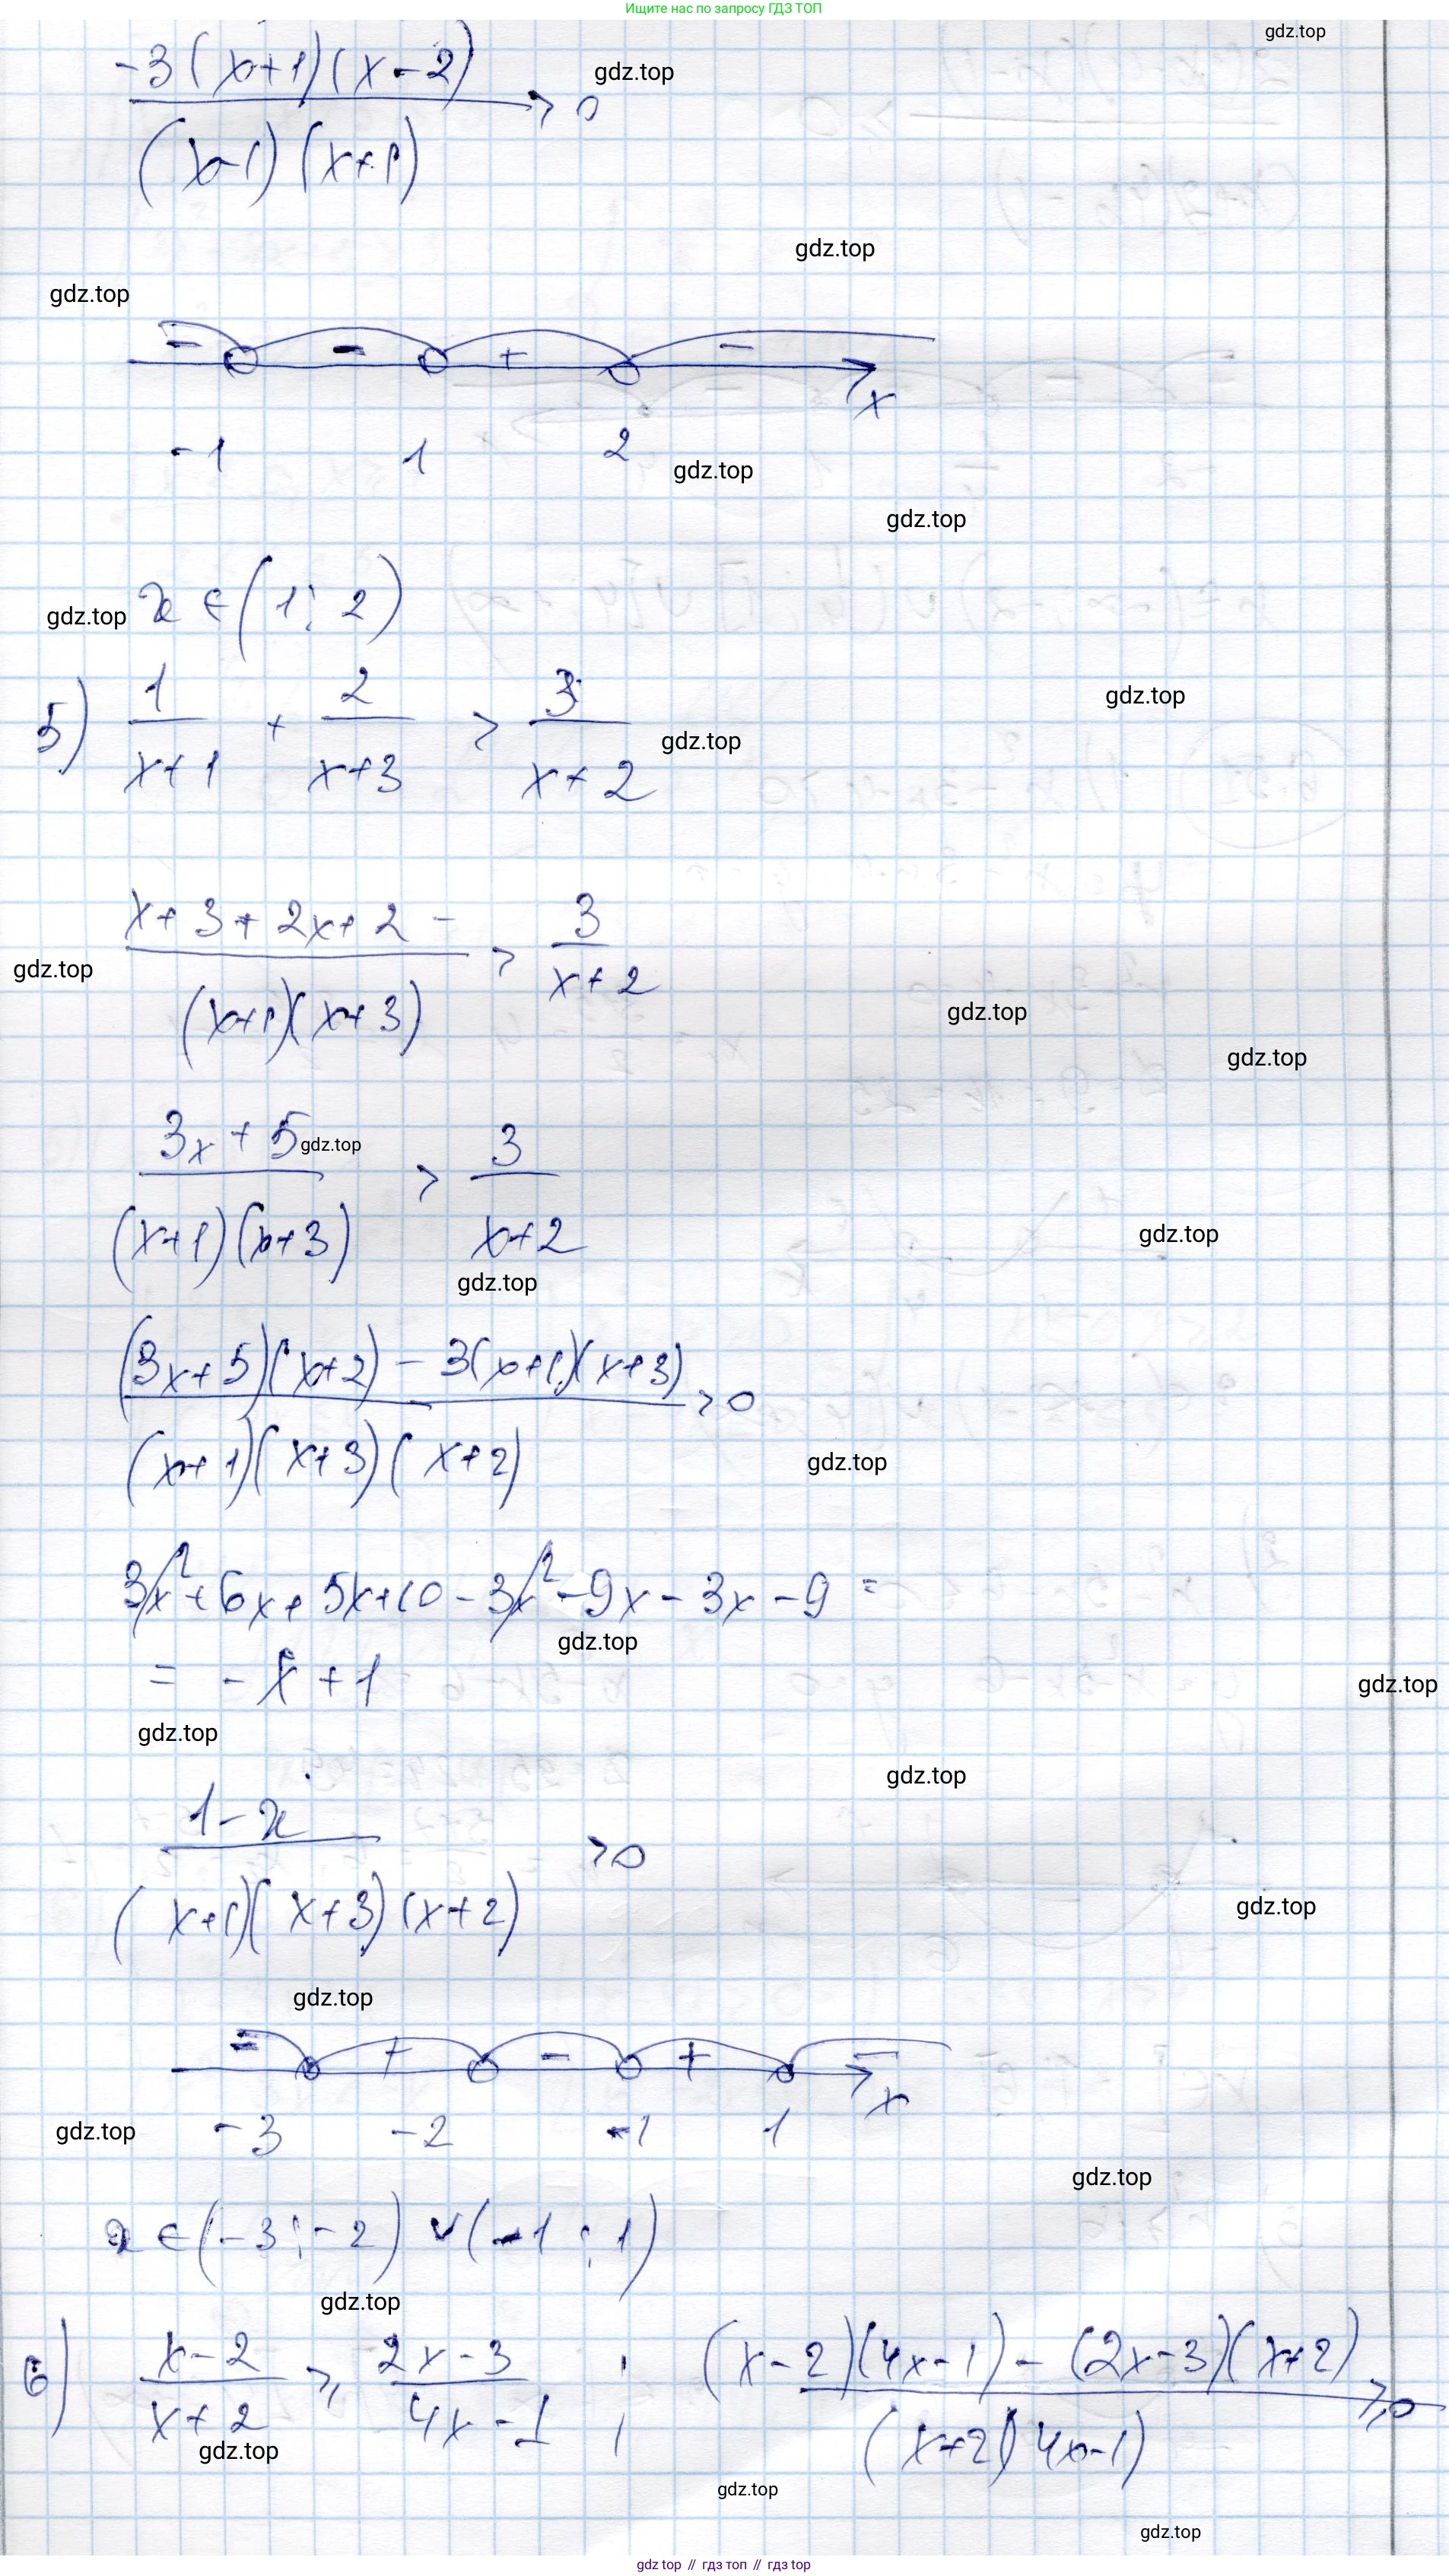 Ищите нас по запросу ГДЗ ТОП
gdz.top
-3(x+1)(x-2)
gdz.top
> 0
(x-1)(x+1)
gdz.top
gdz.top
- - + -
x
-1 1 2
gdz.top
gdz.top
x ∈ (1; 2)
gdz.top
5) 1/(x+1) + 2/(x+3) > 3/(x+2)
gdz.top
gdz.top
(x+3+2x+2 -)/((x+1)(x+3)) > 3/(x+2)
gdz.top
gdz.top
gdz.top
(3x+5)/((x+1)(x+3)) > 3/(x+2)
gdz.top
gdz.top
gdz.top
((3x+5)(x+2) - 3(x+1)(x+3))/((x+1)(x+3)(x+2)) > 0
gdz.top
3x²+6x+5x+10-3x²-9x-3x-9 =
gdz.top
= -x+1
gdz.top
gdz.top
gdz.top
(1-x)/((x+1)(x+3)(x+2)) > 0
gdz.top
gdz.top
- + - + -
x
-3 -2 -1 1
gdz.top
gdz.top
x ∈ (-3; -2) ∨ (-1; 1)
gdz.top
6) (x-2)/(x+2) ⩾ (2x-3)/(4x-1) ; ((x-2)(4x-1) - (2x-3)(x+2))/((x+2)(4x-1)) ⩾ 0
gdz.top
gdz.top
gdz.top
gdz top // гдз топ // гдз top